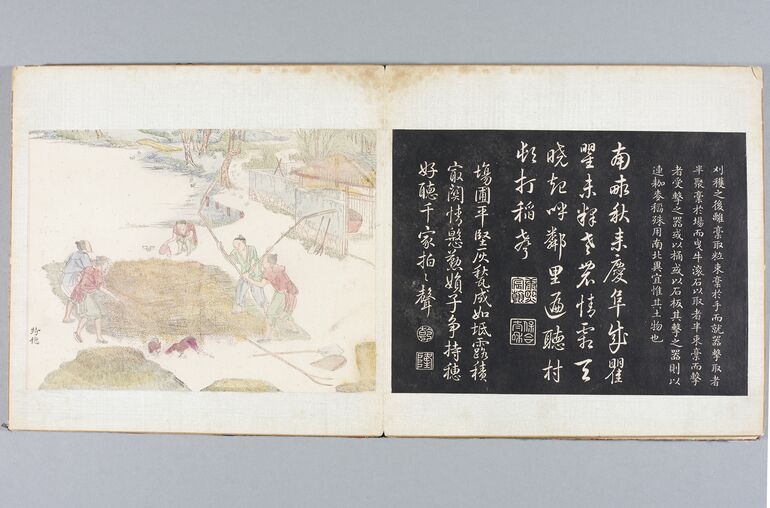 刈穫之後離稾取粒束稾於手而就器擊取者
半聚稾於場而曳牛滾石以取者半束稾而擊
者受擊之器或以桶或以石板其擊之器則以
連耞麥稻殊用南北異宜惟其土物也
南畝秋来慶阜成瞿
瞿未釋老農情霜天
曉起呼鄰里遍聽村
村打稻聲
塲圃平堅灰甃成如坻露積
㝡関情慇懃媍子爭持穗
好聽千家拍〻聲
乾
隆
持穗